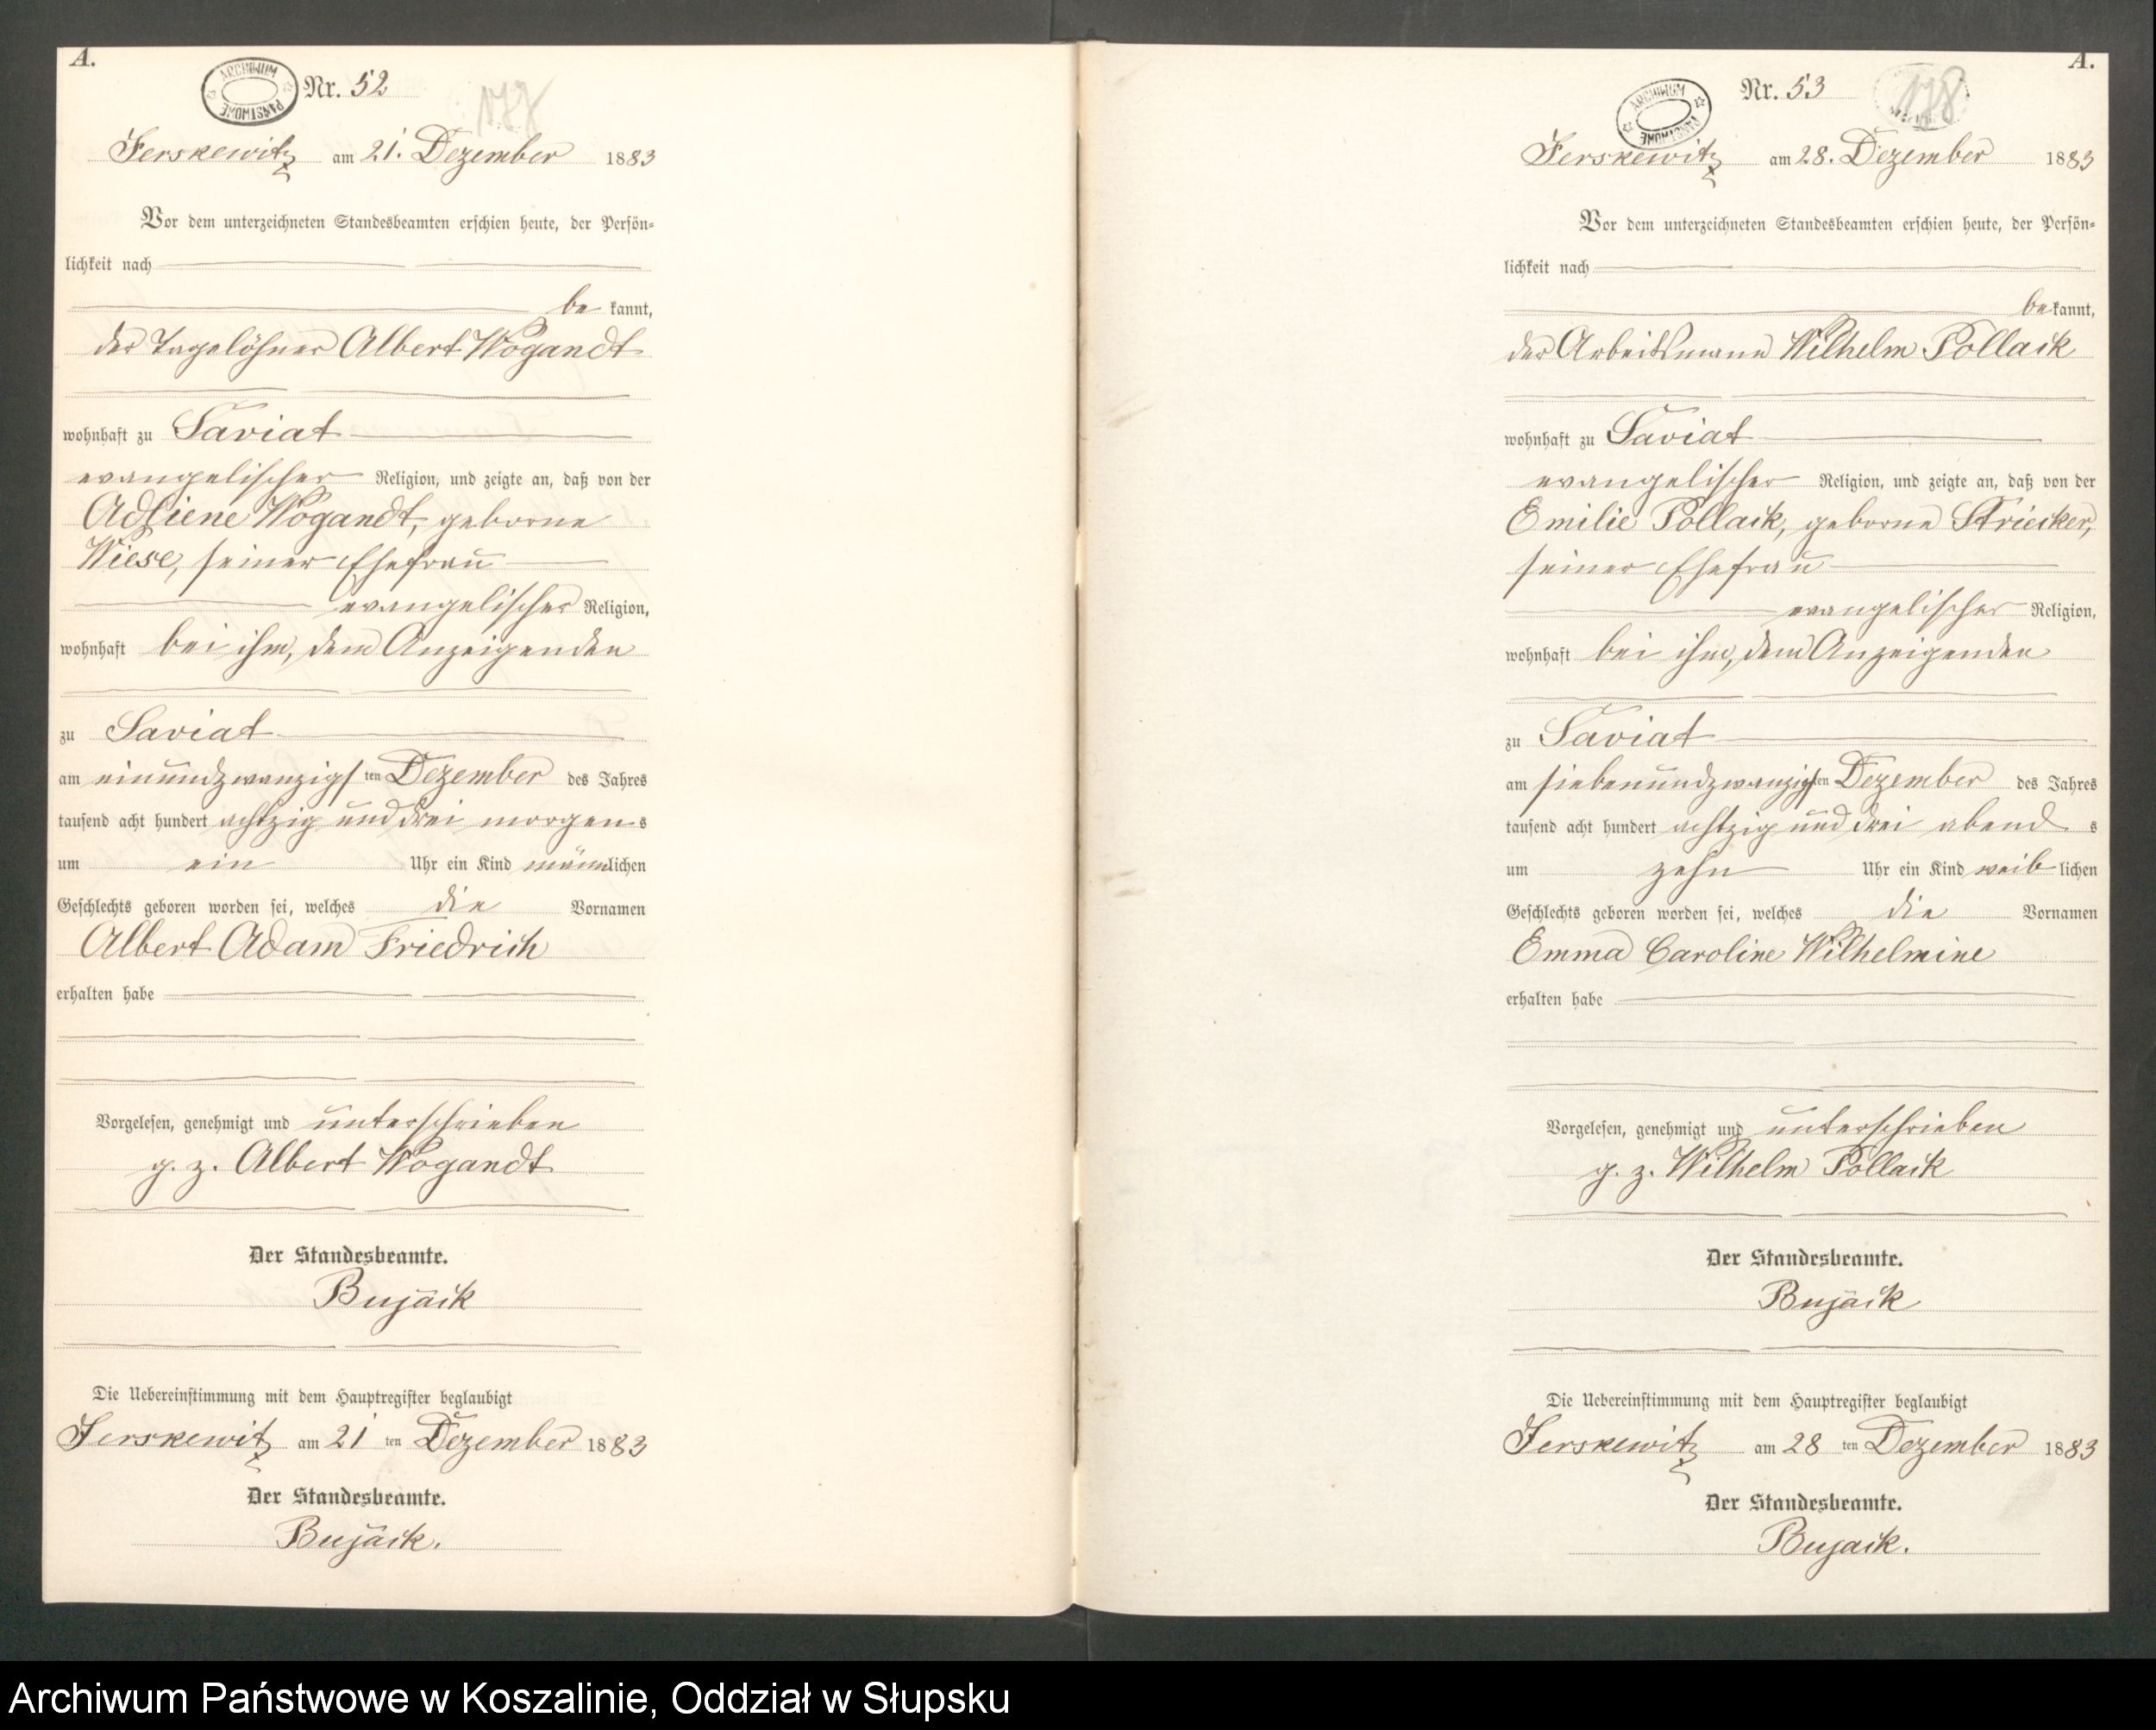 A.
ARCHIWUM PAŃSTWOWE
Nr. 52
178
Jerskewitz am 21. Dezember 1883
Vor dem unterzeichneten Standesbeamten erschien heute, der Persön-
lichkeit nach
be kannt,
der Tagelöhner Albert Wogandt
wohnhaft zu Saviat
evangelischer Religion, und zeigte an, daß von der
Wogandt, geborne
Wiese, seiner Ehefrau
evangelischer Religion,
wohnhaft bei ihm, dem Anzeigenden
zu Saviat
am einundzwanzigs ten Dezember des Jahres
tausend acht hundert achtzig und drei morgens
um ein Uhr ein Kind männlichen
Geschlechts geboren worden sei, welches die Vornamen
Albert Adam Friedrich
erhalten habe
Vorgelesen, genehmigt und unterschrieben
g. z. Albert Wogandt
Der Standesbeamte.
Bujack
Die Uebereinstimmung mit dem Hauptregister beglaubigt
Jerskewitz am 21 ten Dezember 1883
Der Standesbeamte.
Bujack.
A.
ARCHIWUM PAŃSTWOWE
Nr. 53
178
Jerskewitz am 28. Dezember 1883
Vor dem unterzeichneten Standesbeamten erschien heute, der Persön-
lichkeit nach
bekannt,
der Arbeitsmann Wilhelm Pollack
wohnhaft zu Saviat
evangelischer Religion, und zeigte an, daß von der
Emilie Pollack, geborne Striecker,
seiner Ehefrau
evangelischer Religion,
wohnhaft bei ihm, dem Anzeigenden
zu Saviat
am siebenundzwanzigsten Dezember des Jahres
tausend acht hundert achtzig und drei abend s
um zehn Uhr ein Kind weib lichen
Geschlechts geboren worden sei, welches die Vornamen
Emma Caroline Wilhelmine
erhalten habe
Vorgelesen, genehmigt und unterschrieben
g. z. Wilhelm Pollack
Der Standesbeamte.
Bujack
Die Uebereinstimmung mit dem Hauptregister beglaubigt
Jerskewitz am 28 ten Dezember 1883
Der Standesbeamte.
Bujack.
Archiwum Państwowe w Koszalinie, Oddział w Słupsku